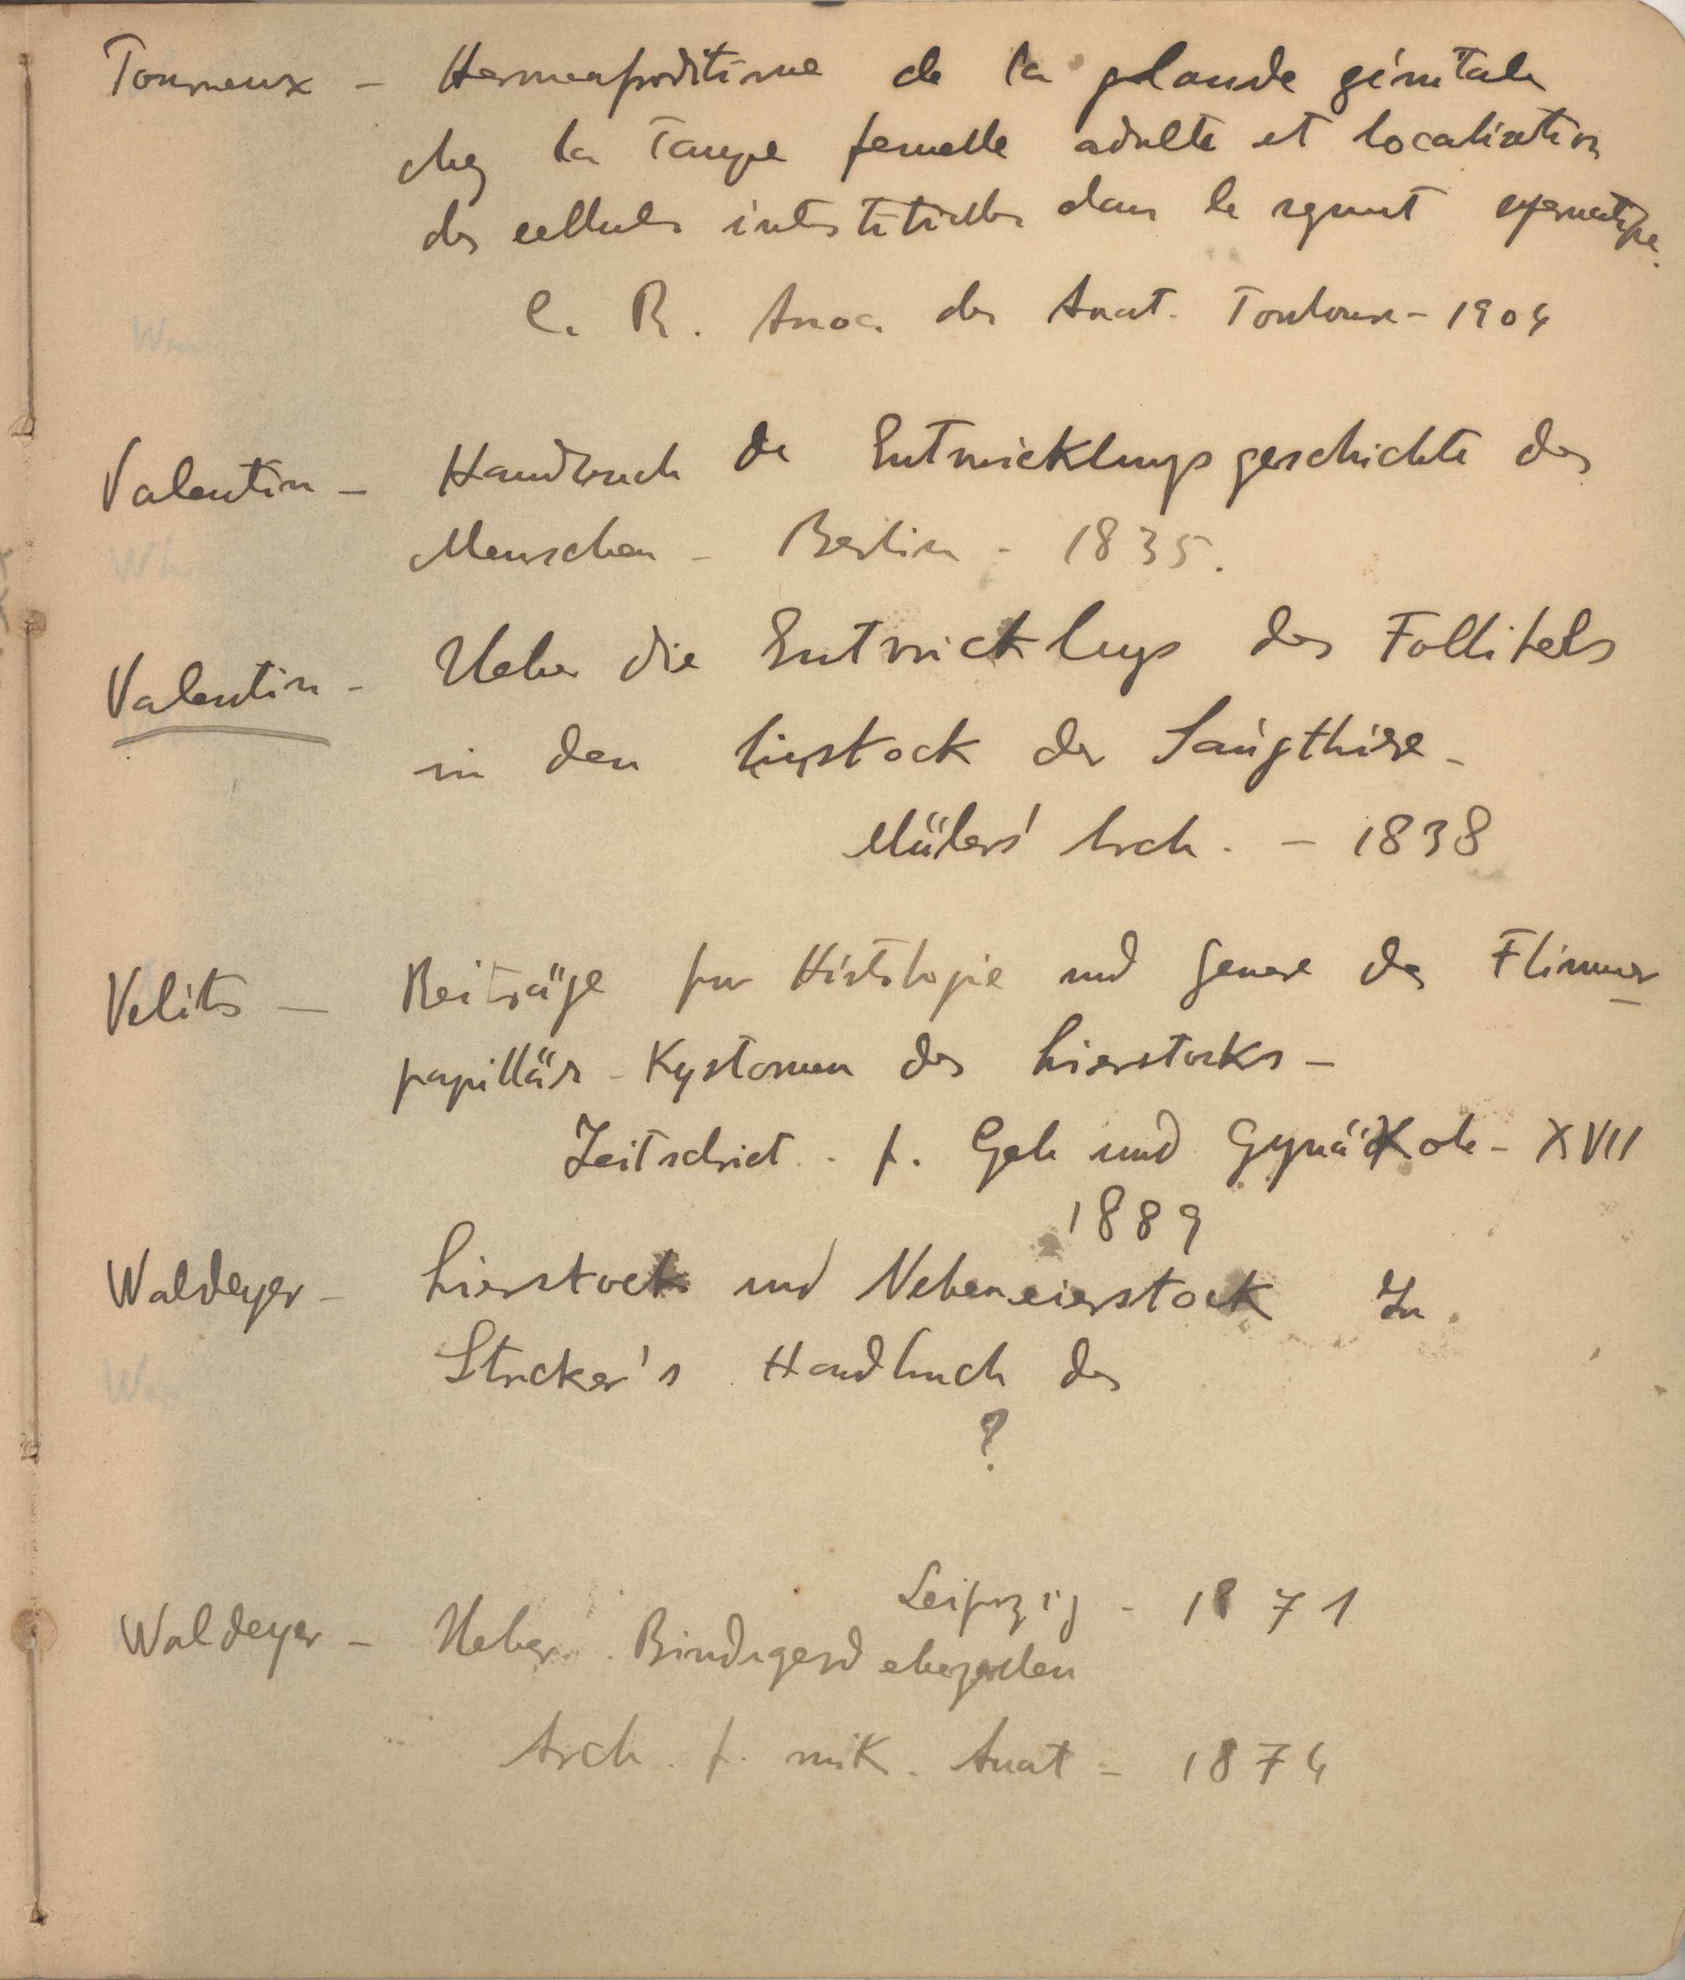 Tourneux – Hermafroditisme de la glande génitale
chez la Taupe femelle adulte et localisation
des cellules interstitielles dans le segment spermatique.
C. R. Assoc. des Anat. Toulouse – 1904
Valentin – Handbuch der Entwicklungsgeschichte des
Menschen – Berlin – 1835.
Valentin – Ueber die Entwicklung des Follikels
in den Eierstock der Säugthiere –
Mülers' Arch. – 1838
Velits – Beiträge zur Histologie und Genese der Flimmer
papillär – Kystomen des Eierstocks –
Zeitschrict. f. Geb und Gynäkol – XVII
1889
Waldeyer – Eierstock und Nebeneierstock In
Stricker's Handbuch der
?
Leipzig – 1871
Waldeyer – Ueber Bindegewebezellen
Arch. f. mik. Anat – 1874